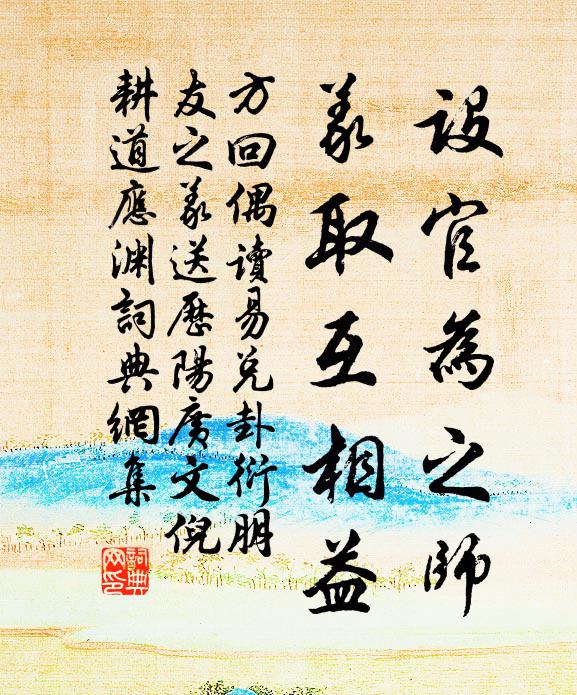 設官為之師
義取互相益
方回偶讀易兌卦衍朋
友之義送歷陽廣文倪
耕道應淵詞典網集
詞典
网印